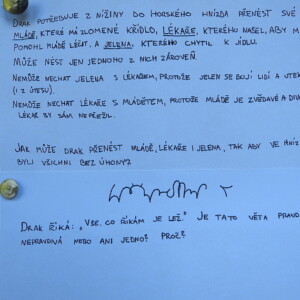 DRAK POTŘEBUJE Z NÍŽINY DO HORSKÉHO HNÍZDA PŘENÉST SVÉ
MLÁDĚ, KTERÉ MÁ ZLOMENÉ KŘÍDLO, LÉKAŘE, KTERÉHO NAŠEL, ABY M
POMOHL MLÁDĚ LÉČIT, A JELENA, KTERÉHO CHYTIL K JÍDLU.
MŮŽE NÉST JEN JEDNOHO Z NICH ZÁROVEŇ.
NEMŮŽE NECHAT JELENA S LÉKAŘEM, PROTOŽE JELEN SE BOJÍ LIDÍ A UTEK
(I Z ÚTESU).
NEMŮŽE NECHAT LÉKAŘE S MLÁDĚTEM, PROTOŽE MLÁDĚ JE ZVĚDAVÉ A DIVO
LÉKAŘ BY SÁM NEPŘEŽIL.
JAK MŮŽE DRAK PŘENÉST MLÁDĚ, LÉKAŘE I JELENA, TAK ABY VE HNÍZ
BYLI VŠICHNI BEZ ÚHONY?
DRAK ŘÍKÁ: „VŠE, CO ŘÍKÁM JE LEŽ." JE TATO VĚTA PRAVD
NEPRAVDIVÁ NEBO ANI JEDNO? PROČ?